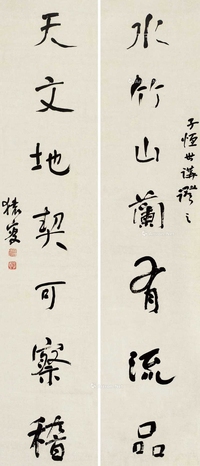 水竹山蘭有流品
子恆世講證之
天文地契可察稽
猿叟